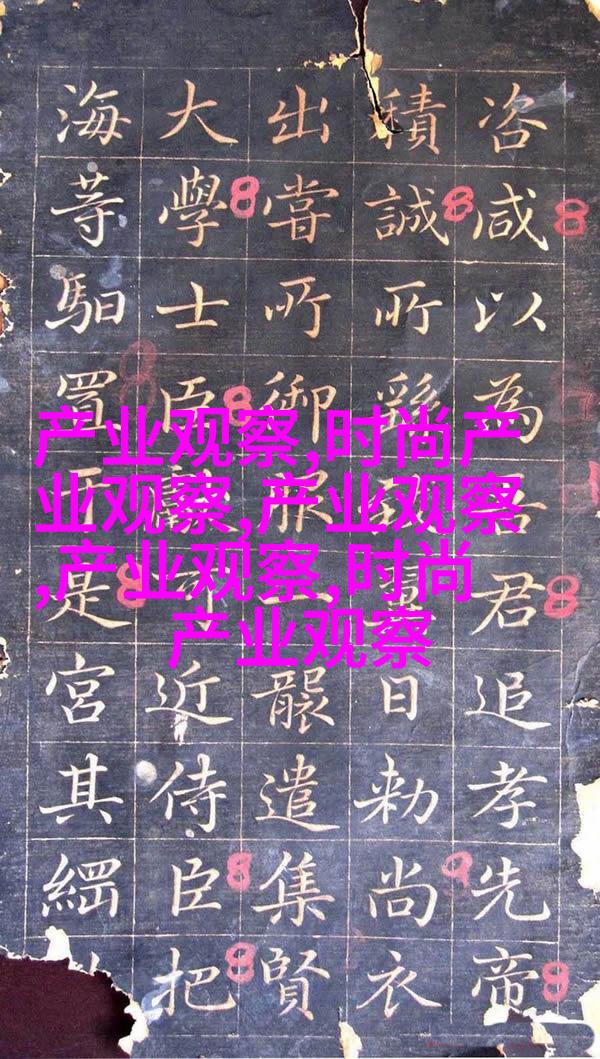 咨咸以為吾君追孝先帝
積誠所日勅尚衣
出嘗所御服一襲遣集賢
大學士臣近侍臣把
海等馹置于是宮其
产业观察,时尚产
业观察,产业观察
,产业观察,时尚
产业观察